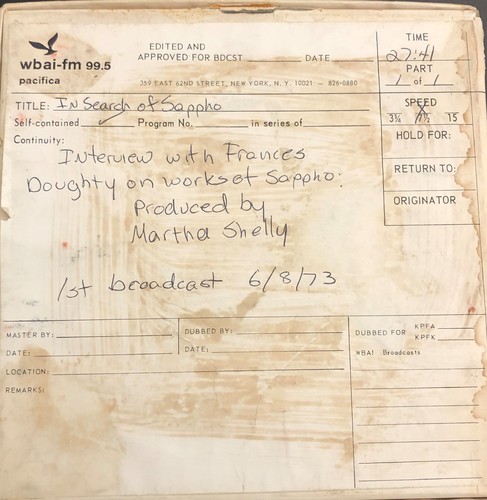 wbai-fm 99.5
pacifica
EDITED AND
APPROVED FOR BDCST. DATE
359 EAST 62ND STREET, NEW YORK, N. Y. 10021 — 826-0880
TIME
27:41
PART
1 of 1
TITLE: In Search of Sappho
Self-contained ✓ Program No. in series of
SPEED
3¾ 7½ 15
Continuity:
HOLD FOR:
RETURN TO:
ORIGINATOR
Interview with Frances
Doughty on works of Sappho.
Produced by
Martha Shelly
1st broadcast 6/8/73
MASTER BY:
DATE:
DUBBED BY:
DATE:
DUBBED FOR KPFA
KPFK
WBAI Broadcasts
LOCATION:
REMARKS: